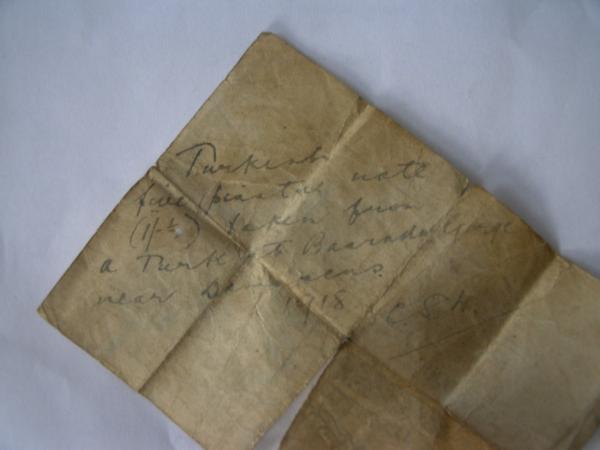 Turkish note
five piastre
(1/-) taken from
a Turk at Baarada Gorge
near Damascus.
1918 C.S.H.